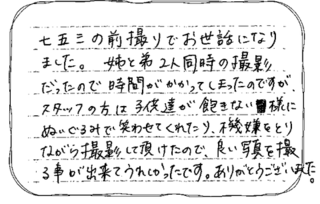 七五三の前撮りでお世話になり
ました。姉と弟2人同時の撮影
だったので時間がかかってしまったのですが、
スタッフの方は子供達が飽きない様に
ぬいぐるみで笑わせてくれたり、機嫌をとり
ながら撮影して頂けたので、良い写真を撮
る事が出来てうれしかったです。ありがとうございました。